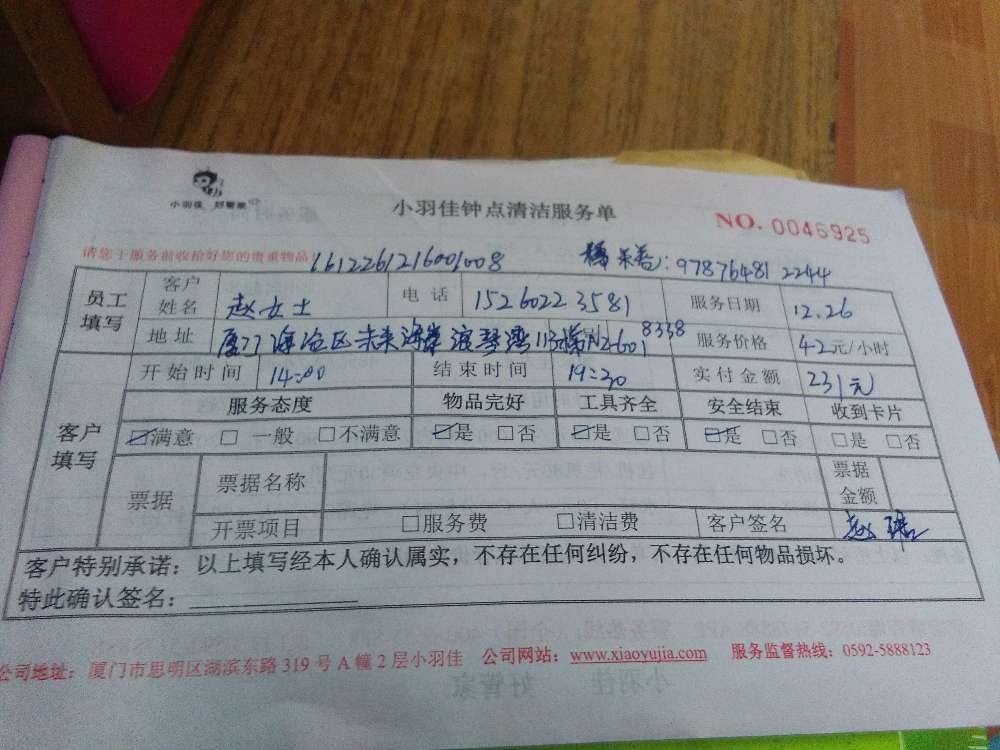 小羽佳 好管家
小羽佳钟点清洁服务单
NO. 0045925
请您于服务前收拾好您的贵重物品
1612261216001008 97876481 2244
员工填写 客户姓名 赵女士 电话 15260223581 服务日期 12.26
地址 厦门海沧区未来海岸 113 N2-601 8338 服务价格 42元/小时
客户填写 开始时间 14:00 结束时间 19:30 实付金额 231元
服务态度 物品完好 工具齐全 安全结束 收到卡片
☑满意 □一般 □不满意 ☑是 □否 ☑是 □否 ☑是 □否 □是 □否
票据 票据名称 票据金额
开票项目 □服务费 □清洁费 客户签名 赵
客户特别承诺：以上填写经本人确认属实，不存在任何纠纷，不存在任何物品损坏。
特此确认签名：
公司地址：厦门市思明区湖滨东路 319 号 A 幢 2 层小羽佳 公司网站：www.xiaoyujia.com 服务监督热线：0592-5888123